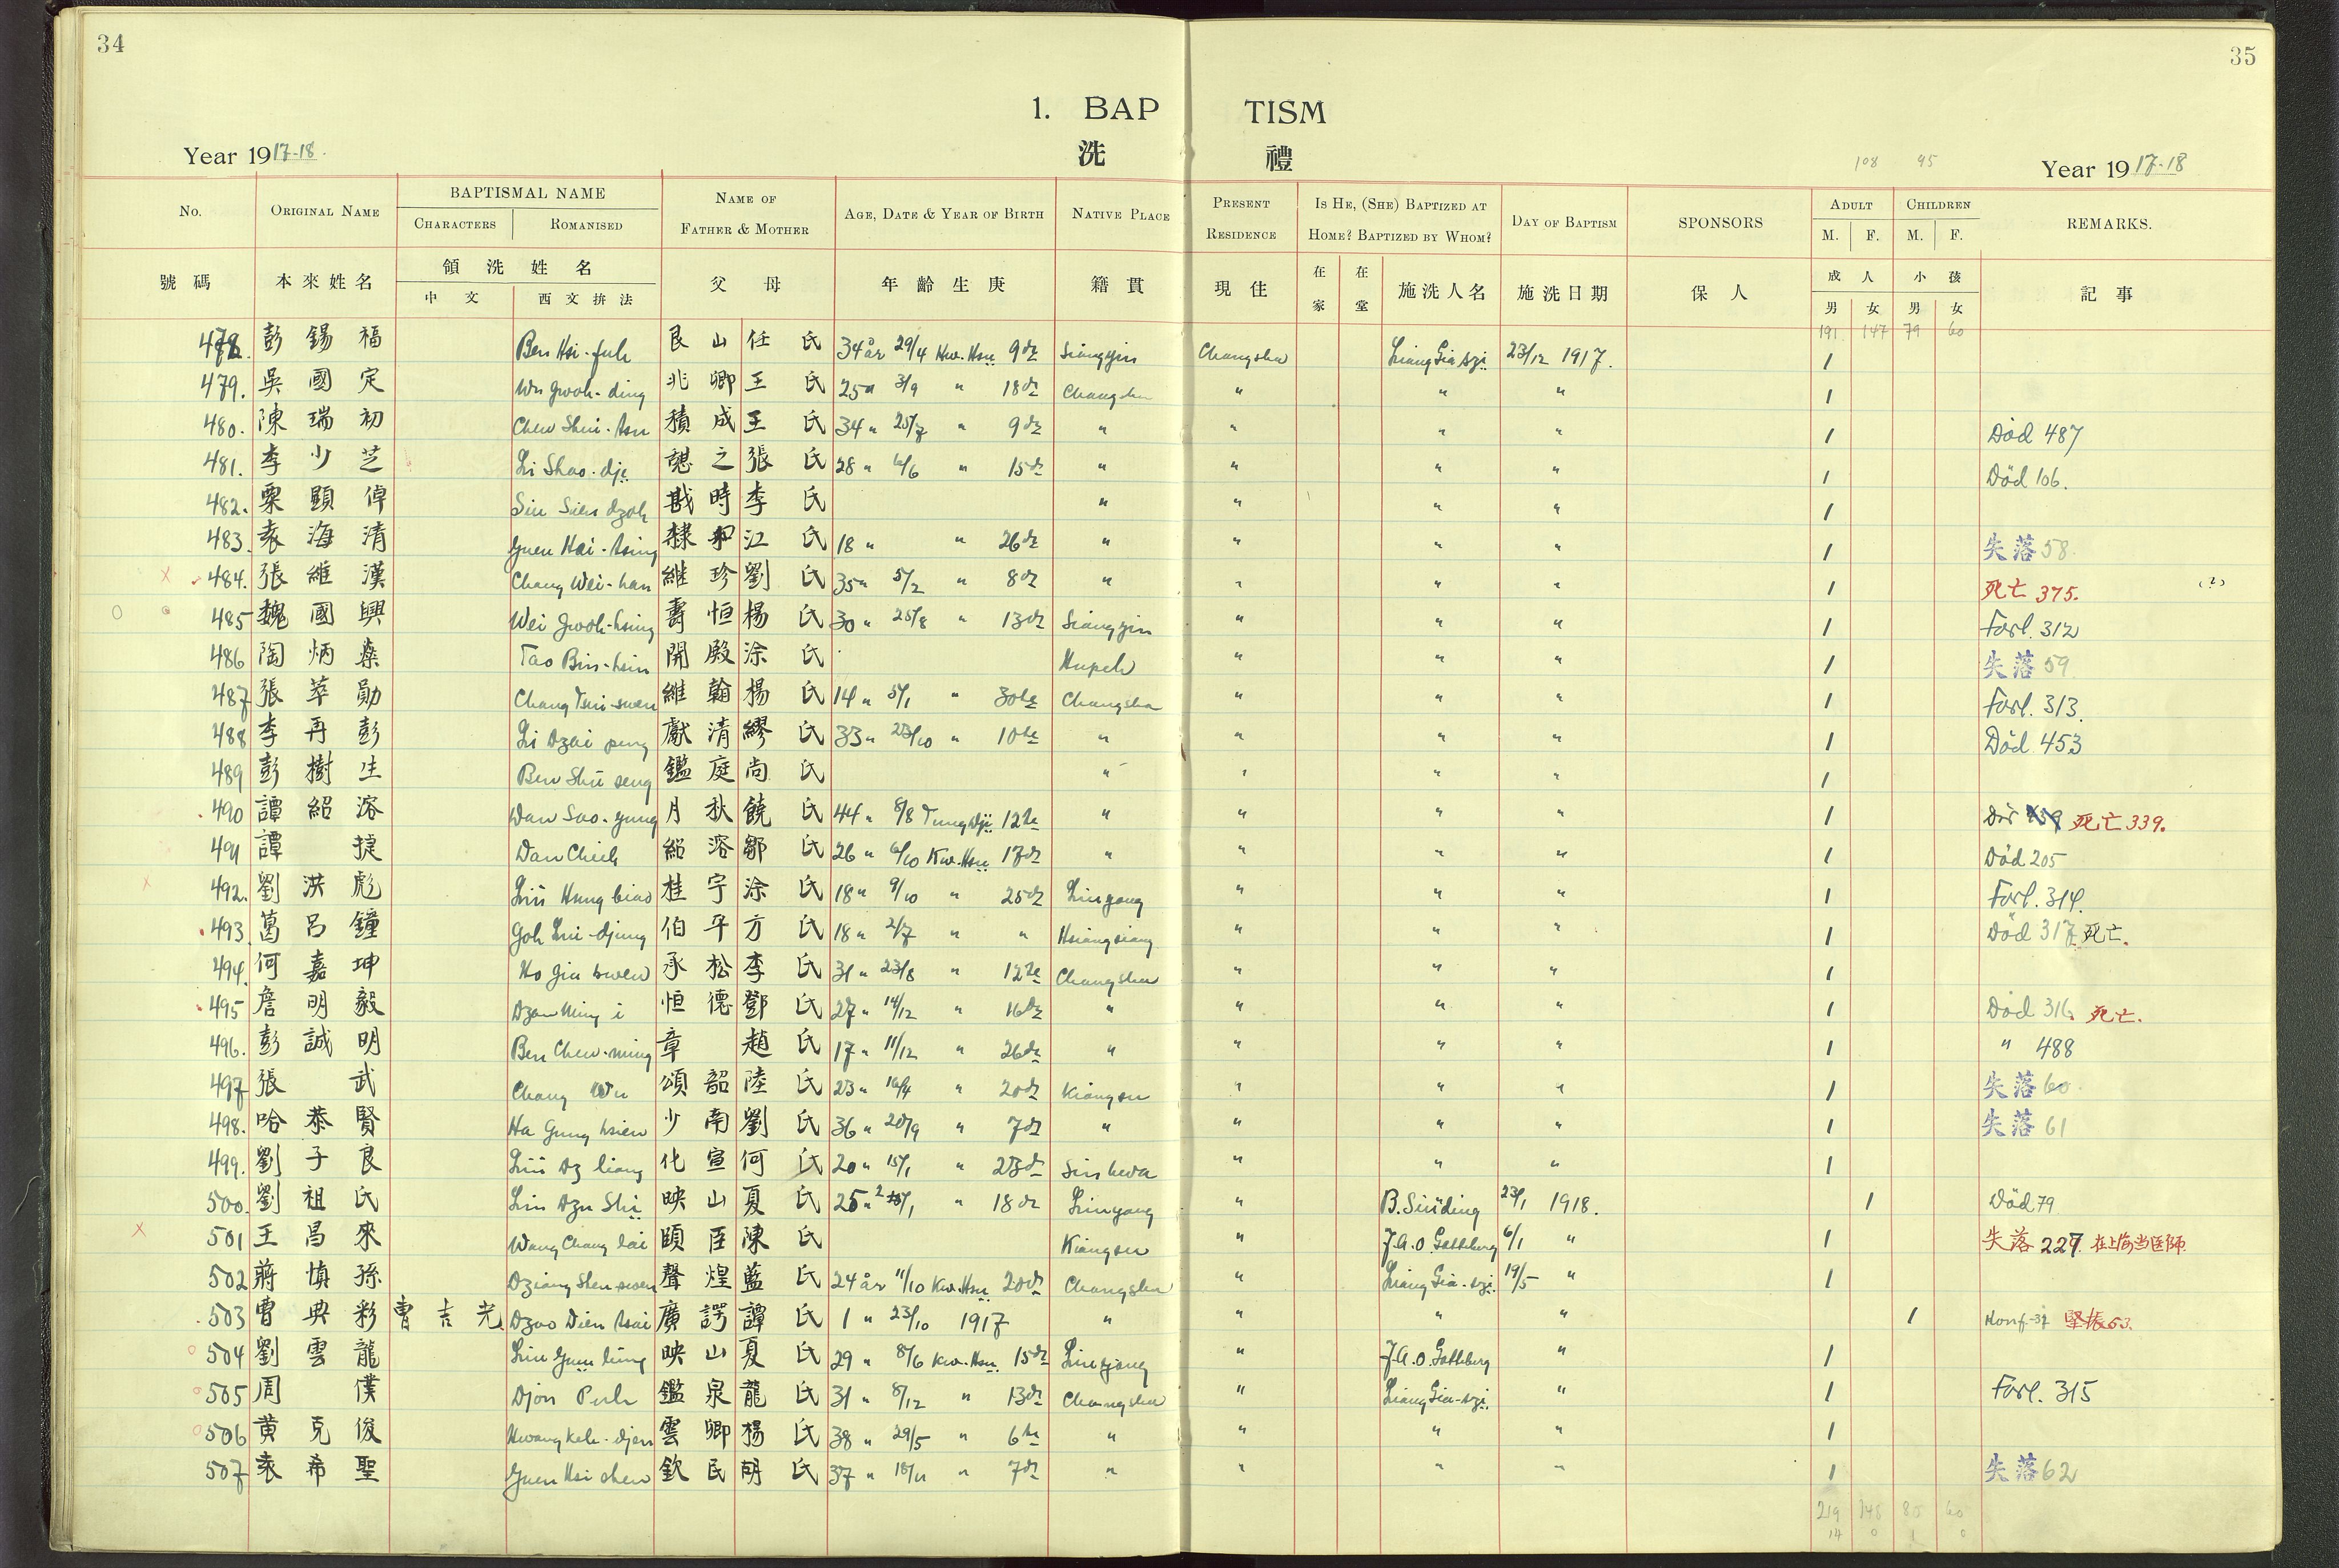 34
35
1. BAP TISM
洗 禮
Year 1917-18. 108 95 Year 1917-18
No. ORIGINAL NAME BAPTISMAL NAME NAME OF FATHER & MOTHER AGE, DATE & YEAR OF BIRTH NATIVE PLACE PRESENT RESIDENCE IS HE, (SHE) BAPTIZED AT HOME? BAPTIZED BY WHOM? DAY OF BAPTISM SPONSORS ADULT CHILDREN REMARKS.
CHARACTERS ROMANISED M. F. M. F.
號碼 本來姓名 領洗姓名 父母 年齡生庚 籍貫 現住 在家 在堂 施洗人名 施洗日期 保人 成人 小孩 記事
中文 西文拚法 男 女 男 女
191 147 79 60
478. 彭錫福 Ben Hsi-fuh 艮山 任氏 34 år 29/4 Kw.Hsü 9de Siangyin Changsha Liang Gia-szi 23/12 1917. 1
479. 吳國定 Wu Gwoh-ding 兆卿 王氏 25 " 3/9 " 18de Changsha " " " 1
480. 陳瑞初 Chen Shui-tsu 積成 王氏 34 " 25/7 " 9de " " " " 1 Död 487
481. 李少芝 Li Shao-dji 之 張氏 28 " 6/6 " 15de " " " " 1 Död 106.
482. 粟顯倬 Siu Sien dzoh 戡時 李氏 " " " " 1
483. 袁海清 Yuen Hai-tsing 隸和 江氏 18 " " 26de " " " " 1 失落 58
484. 張維漢 Chang Wei-han 継珍 劉氏 35 " 5/2 " 8de " " " " 1 死亡 375. (2)
485 魏國興 Wei Gwoh-hsing 壽恒 楊氏 30 " 25/8 " 13de Siangyin " " " 1 Forl. 312
486 陶炳燊 Tao Bin-hsin 開殿 涂氏 Hupeh " " " 1 失落 59
487 張萃勛 Chang Tsui-swen 維翰 楊氏 14 " 5/1 " 30te Changsha " " " 1 Forl. 313.
488 李再彭 Li Dzai peng 獻清 繆氏 33 " 23/10 " 10te " " " " 1 Död 453
489 彭樹生 Ben Shü seng 鑑庭 尚氏 " " " " 1
490 譚紹溶 Dan Sao-yung 月秋 饒氏 44 " 8/8 Tung Dji 12te " " " " 1 死亡 339.
491 譚捷 Dan Chieh 紹溶 鄒氏 26 " 6/10 Kw.Hsü 17de " " " " 1 Död 205
492. 劉洪彪 Liü Hung biao 桂宇 涂氏 18 " 9/10 " 25de Liuyang " " " 1 Forl. 314.
493. 葛呂鐘 Goh Lui-djung 伯平 方氏 18 " 2/7 " " Hsiangsiang " " " 1 Död 317. 死亡.
494. 何嘉坤 Ho Gia kwen 承松 李氏 31 " 23/8 " 12te Changsha " " " 1
495 詹明毅 Dzan Ming i 恒德 鄧氏 27 " 14/12 " 16de " " " " 1 Död 316. 死亡.
496. 彭誠明 Ben Chen-ming 章 趙氏 17 " 11/12 " 26de " " " " 1 " 488
497 張武 Chang Wu 頌韶 陸氏 23 " 16/4 " 20de Kiangsu " " " 1 失落 60
498. 哈恭賢 Ha Gung hsien 少南 劉氏 36 " 20/9 " 7de " " " " 1 失落 61
499. 劉子良 Liü Dz liang 化宣 何氏 20 " 15/1 " 23de Sinhwa " " " 1
500. 劉祖氏 Liu Dzu Shi 映山 夏氏 25 " " 18de Liuyang " B. Siüding 23/1 1918. 1 Död 79
501 王昌來 Wang Chang lai 頤臣 陳氏 Kiangsu " J.A.O. Gottberg 6/1 " 1 失落 227. 在上海当医師.
502 蔣慎孫 Dziang Shen-swen 聲煌 藍氏 24 år 11/10 Kw.Hsü 20de Changsha " Liang Gia-szi. 19/5 " 1
503 曹典彩 曹吉光 Dzao Dien tsai 廣諤 譚氏 1 " 23/10 1917 " " " " 1 Konf.-37 堅振 53.
504 劉雲龍 Liu Yuen lung 映山 夏氏 29 " 8/6 Kw.Hsü. 15de Liuyang " J.A.O. Gottberg " 1
505 周僕 Djou Puh 鑑泉 龍氏 31 " 8/12 " 13de Changsha " Liang Gia-szi. " 1 Forl. 315
506 黄克俊 Hwang Keh-djen 雲卿 楊氏 38 " 29/5 " 6te " " " " 1
507 袁希聖 Yuen Hsi shen 欽民 胡氏 37 " 18/11 " 7de " " " " 1 失落 62
219 148 80 60
14 0 1 0